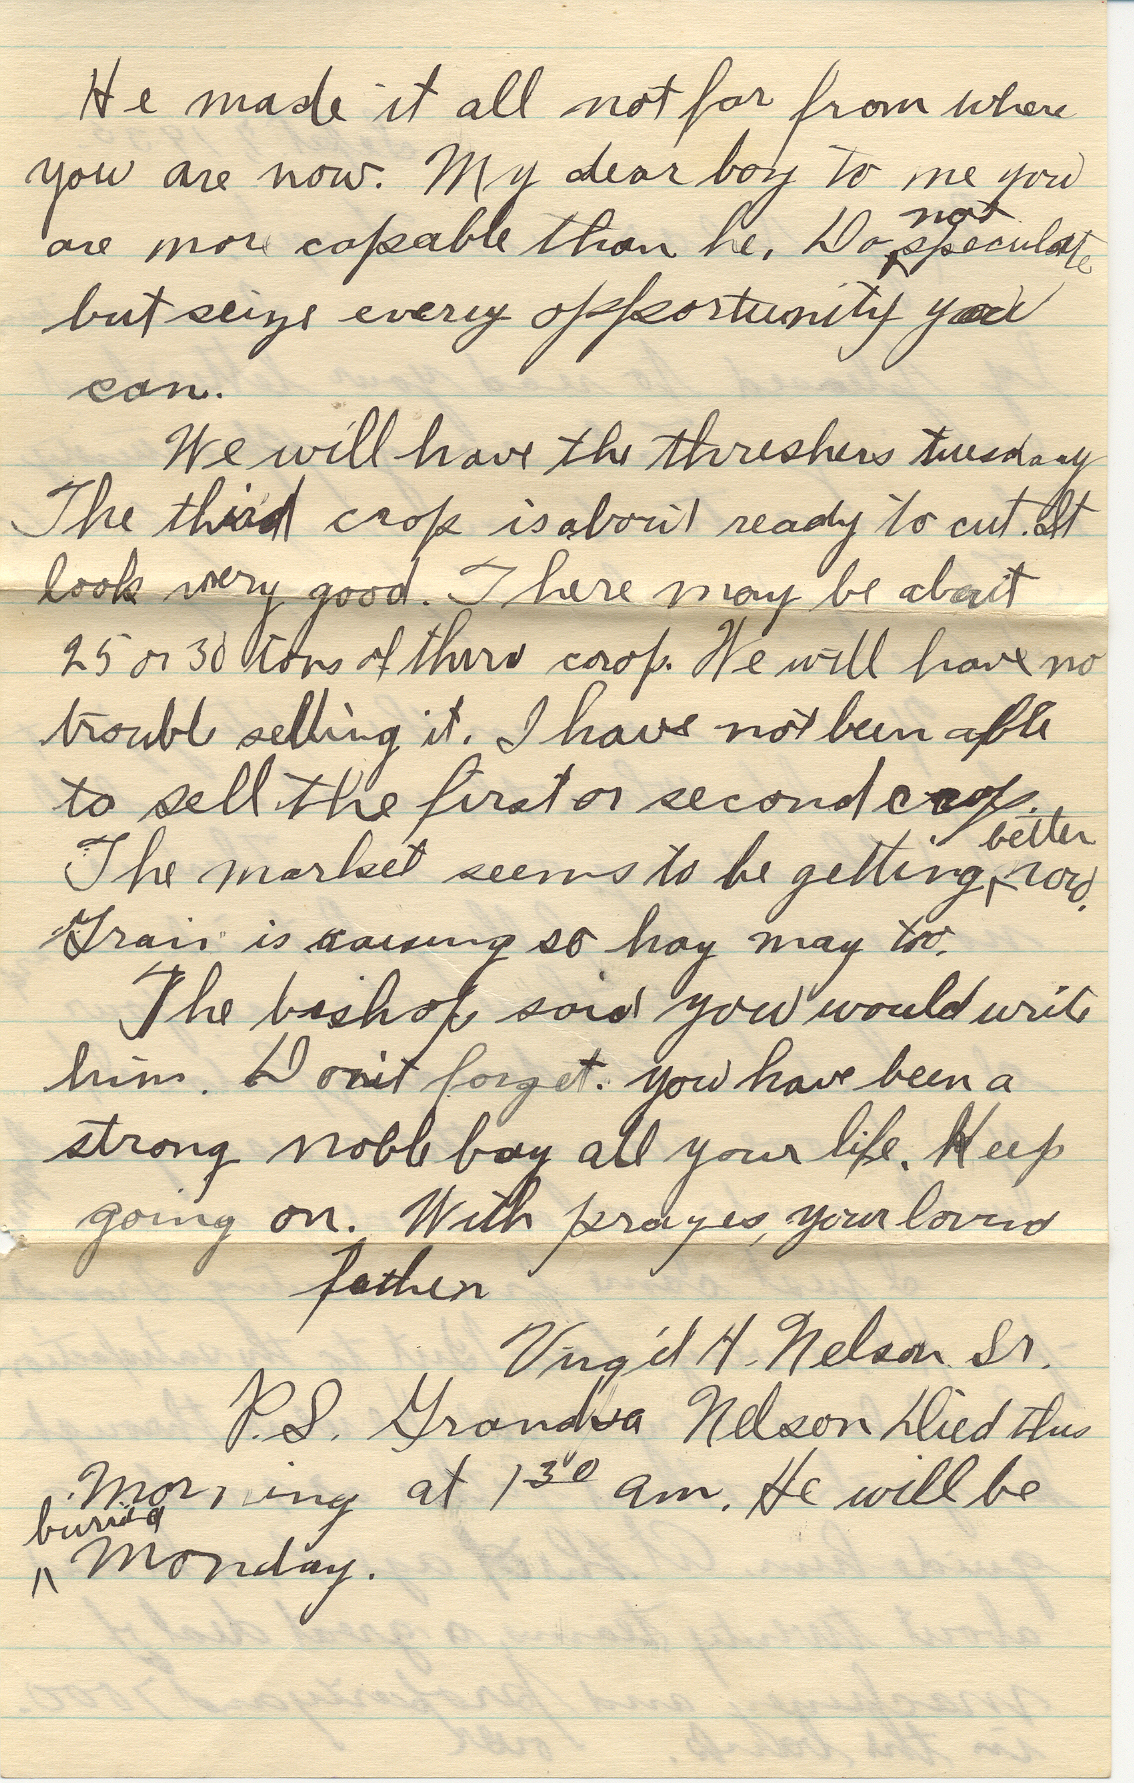 He made it all not far from where
you are now. My dear boy to me you
are more capable than he. Do not speculate
but seize every opportunity you
can.
We will have the threshers tuesday
The third crop is about ready to cut. It
look very good. There may be about
25 or 30 tons of third crop. We will have no
trouble selling it. I have not been able
to sell the first or second crop.
The market seems to be getting better now.
Grain is raising so hay may too.
The bishop said you would write
him. Don't forget. you have been a
strong noble boy all your life. Keep
going on. With prayes, your loving
father
Virgil H. Nelson Sr.
P.S. Grandpa Nelson Died this
Morning at 1 30 am. He will be
buried Monday.